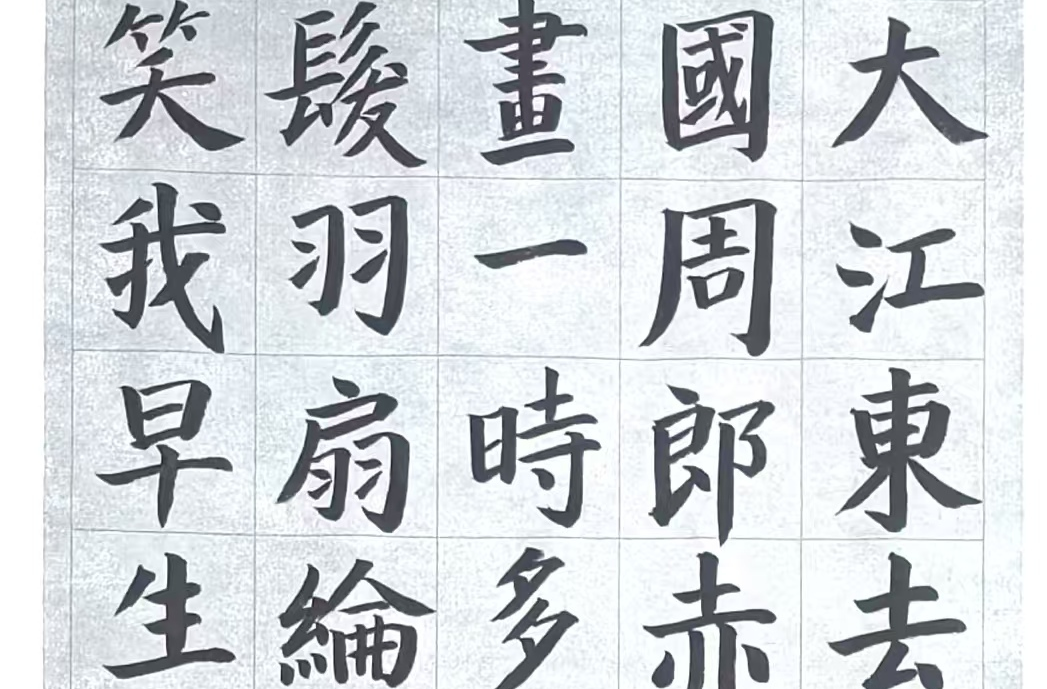 大江東去
國周郎赤
畫一時多
髮羽扇綸
笑我早生